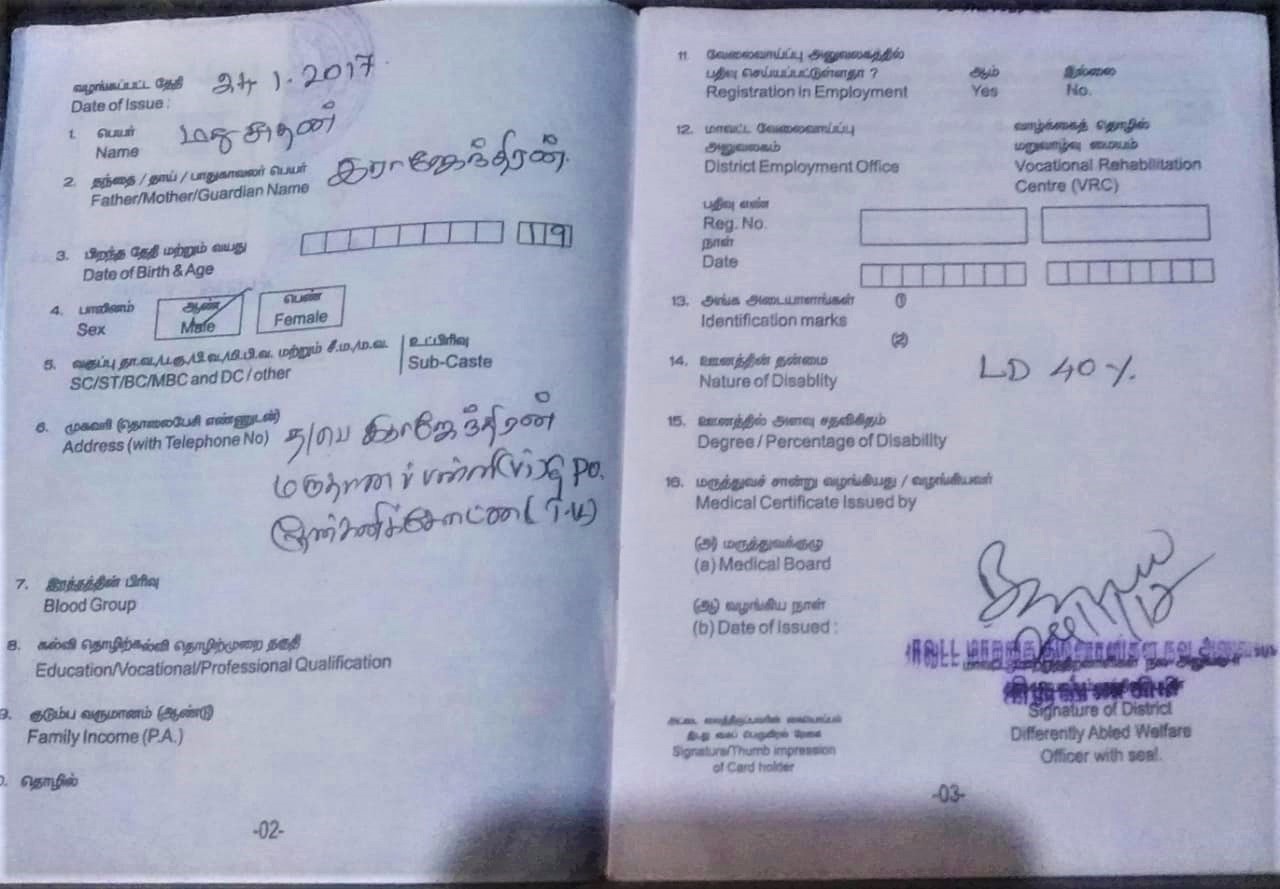 வழங்கப்பட்ட தேதி
Date of Issue : 24 1. 2017
1. பெயர்
Name மதுசுதன்
2. தந்தை / தாய் / பாதுகாவலர் பெயர் இராஜேந்திரன்.
Father/Mother/Guardian Name
3. பிறந்த தேதி மற்றும் வயது 19
Date of Birth & Age
4. பாலினம் ஆண் பெண்
Sex Male Female
5. வகுப்பு தா.வ./ப.கு./பி.வ./மி.பி.வ. மற்றும் சீ.ம./ம.வ. உட்பிரிவு
SC/ST/BC/MBC and DC / other Sub-Caste
6. முகவரி (தொலைபேசி எண்ணுடன்)
Address (with Telephone No) த/பெ இராஜேந்திரன்
(Vi) Po.
(T.K)
7. இரத்தத்தின் பிரிவு
Blood Group
8. கல்வி தொழிற்கல்வி தொழிற்முறை தகுதி
Education/Vocational/Professional Qualification
9. குடும்ப வருமானம் (ஆண்டு)
Family Income (P.A.)
தொழில்
-02-
11. வேலைவாய்ப்பு அலுவலகத்தில்
பதிவு செய்யப்பட்டுள்ளதா ? ஆம் இல்லை
Registration in Employment Yes No.
12. மாவட்ட வேலைவாய்ப்பு வாழ்க்கைத் தொழில்
அலுவலகம் மறுவாழ்வு மையம்
District Employment Office Vocational Rehabilitation
Centre (VRC)
பதிவு எண்
Reg. No.
நாள்
Date
13. அங்க அடையாளங்கள் (1)
Identification marks
(2)
14. ஊனத்தின் தன்மை
Nature of Disablity LD 40 %.
15. ஊனத்தில் அளவு சதவிகிதம்
Degree / Percentage of Disability
16. மருத்துவச் சான்று வழங்கியது / வழங்கியவர்
Medical Certificate Issued by
(அ) மருத்துவக்குழு
(a) Medical Board
(ஆ) வழங்கிய நாள்
(b) Date of Issued :
Signature of District
Differently Abled Welfare
Officer with seal.
Signature/Thumb impression
of Card holder
-03-